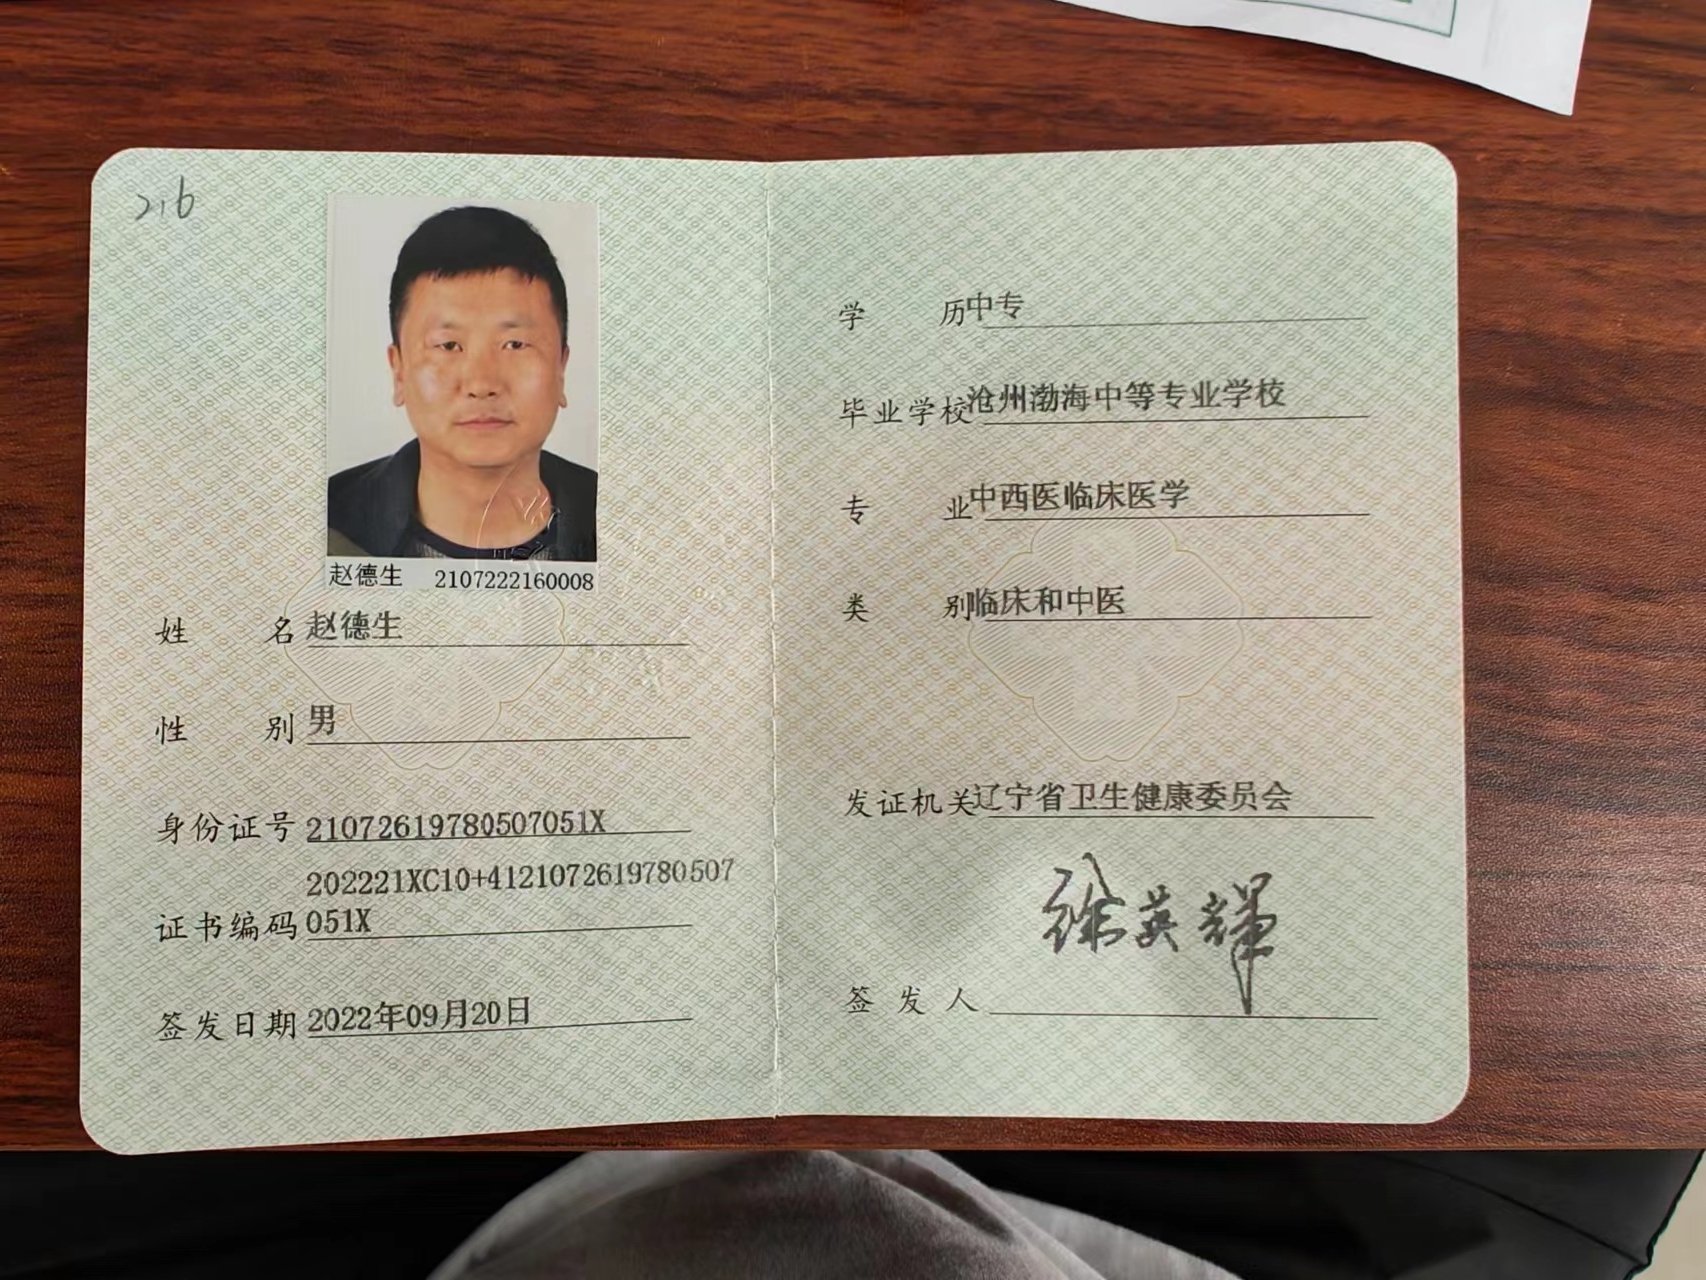 216
赵德生 2107222160008
姓名 赵德生
性别 男
身份证号 21072619780507051X
202221XC10+4121072619780507
证书编码 051X
签发日期 2022年09月20日
学历 中专
毕业学校 沧州渤海中等专业学校
专业 中西医临床医学
类别 临床和中医
发证机关 辽宁省卫生健康委员会
徐英辉
签发人